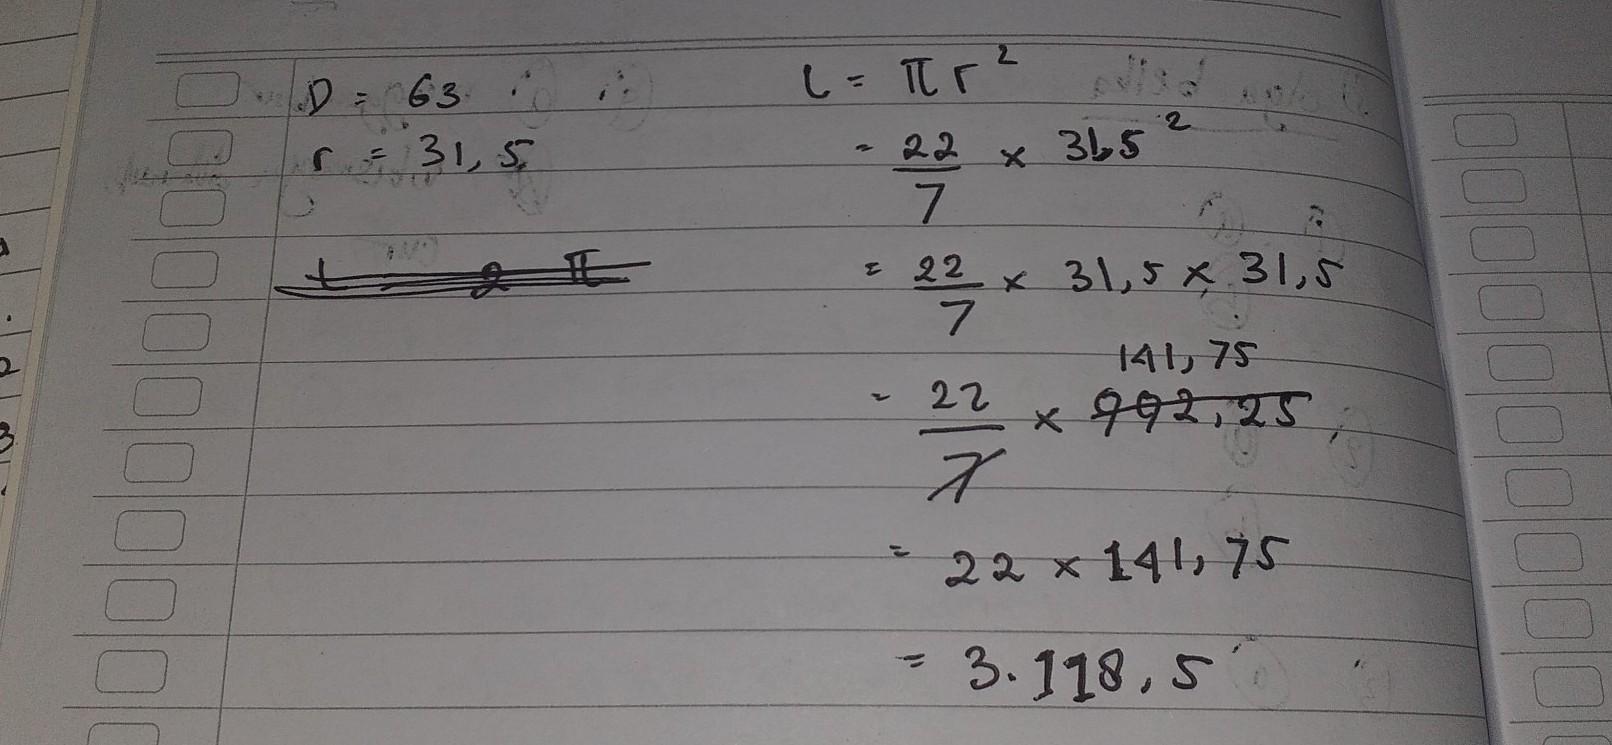 D = 63
r = 31,5
L = π r²
= 22/7 × 31,5²
= 22/7 × 31,5 × 31,5
141,75
= 22/7 × 992,25
= 22 × 141,75
= 3.118,5